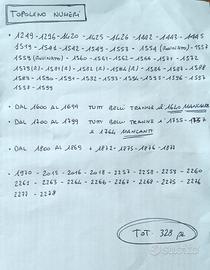 TOPOLINO NUMERI
• 1219 - 1296 - 1420 - 1425 - 1426 - 1442 - 1443 - 1445
1519 - 1546 - 1542 - 1549 - 1553 - 1554 (ROVINATO) - 1557
1559 (ROVINATO) - 1560 - 1561 - 1562 - 1566 - 1571 - 1572
1573 (R) - 1581 (R) - 1582 (R) - 1584 - 1586 - 1587 - 1588
1589 - 1590 - 1591 - 1592 - 1593 - 1594 - 1595 - 1596 - 1597
1598 - 1599
• DAL 1600 AL 1699 TUTTI BELLI TRANNE IL 1640 MANCANTE
• DAL 1700 AL 1799 TUTTI BELLI TRANNE I 1755 - 1757
E 1764 MANCANTI
• DAL 1800 AL 1869 + 1872 - 1875 - 1876 - 1877
• 1970 - 2015 - 2016 - 2018 - 2257 - 2258 - 2259 - 2260
2261 - 2263 - 2264 - 2266 - 2267 - 2268 - 2275 - 2276
2277 - 2278
TOT. 328 pz
subito